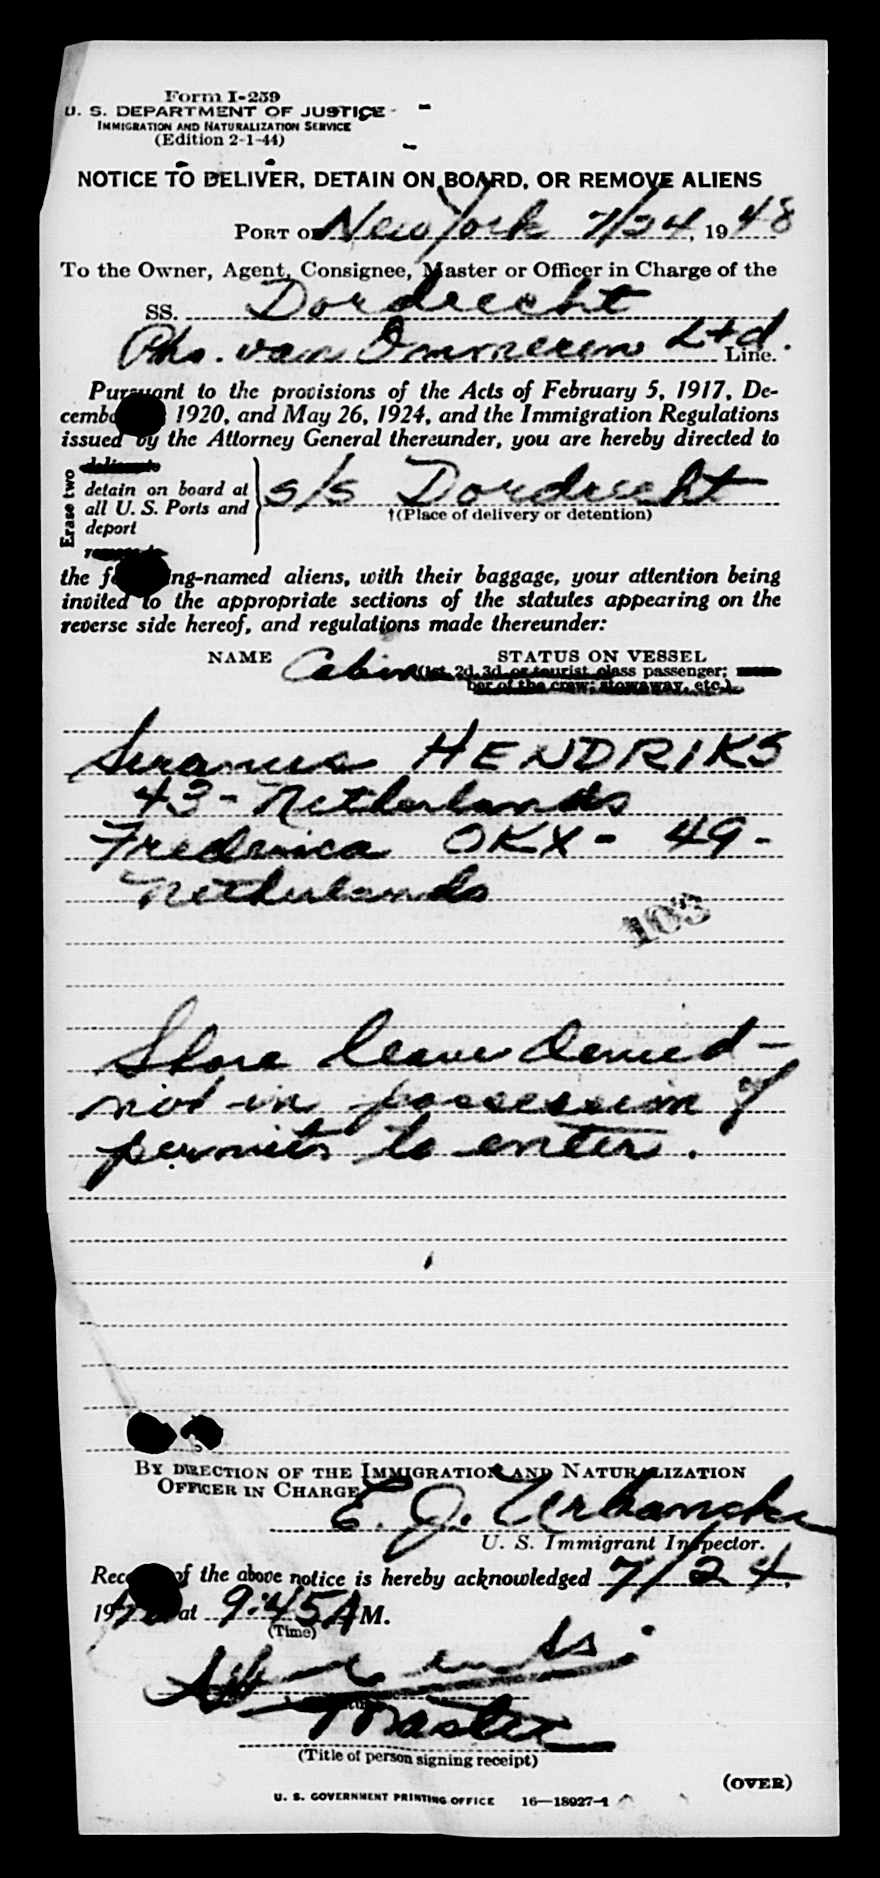 Form I-259
U. S. DEPARTMENT OF JUSTICE
IMMIGRATION AND NATURALIZATION SERVICE
(Edition 2-1-44)
NOTICE TO DELIVER, DETAIN ON BOARD, OR REMOVE ALIENS
PORT OF New York 7/24, 1948
To the Owner, Agent, Consignee, Master or Officer in Charge of the
SS. Dordrecht
Phs. van Ommeren Ltd. Line.
Pursuant to the provisions of the Acts of February 5, 1917, De-
cember 1920, and May 26, 1924, and the Immigration Regulations
issued by the Attorney General thereunder, you are hereby directed to
Erase two
detain on board at
all U. S. Ports and
deport
s/s Dordrecht
†(Place of delivery or detention)
the following-named aliens, with their baggage, your attention being
invited to the appropriate sections of the statutes appearing on the
reverse side hereof, and regulations made thereunder:
NAME Cabin STATUS ON VESSEL
(1st, 2d, 3d, or tourist class passenger;
ber of the crew; stowaway, etc.)
HENDRIKS
43 - Netherlands
Frederica OKX - 49 -
Netherlands
103
Shore leave denied -
not in possession of
permits to enter.
BY DIRECTION OF THE IMMIGRATION AND NATURALIZATION
OFFICER IN CHARGE
E. J. Urbanski
U. S. Immigrant Inspector.
Receipt of the above notice is hereby acknowledged 7/24,
19 at 9:45 A M.
(Time)
Master
(Title of person signing receipt)
(OVER)
U. S. GOVERNMENT PRINTING OFFICE 16—18927-1